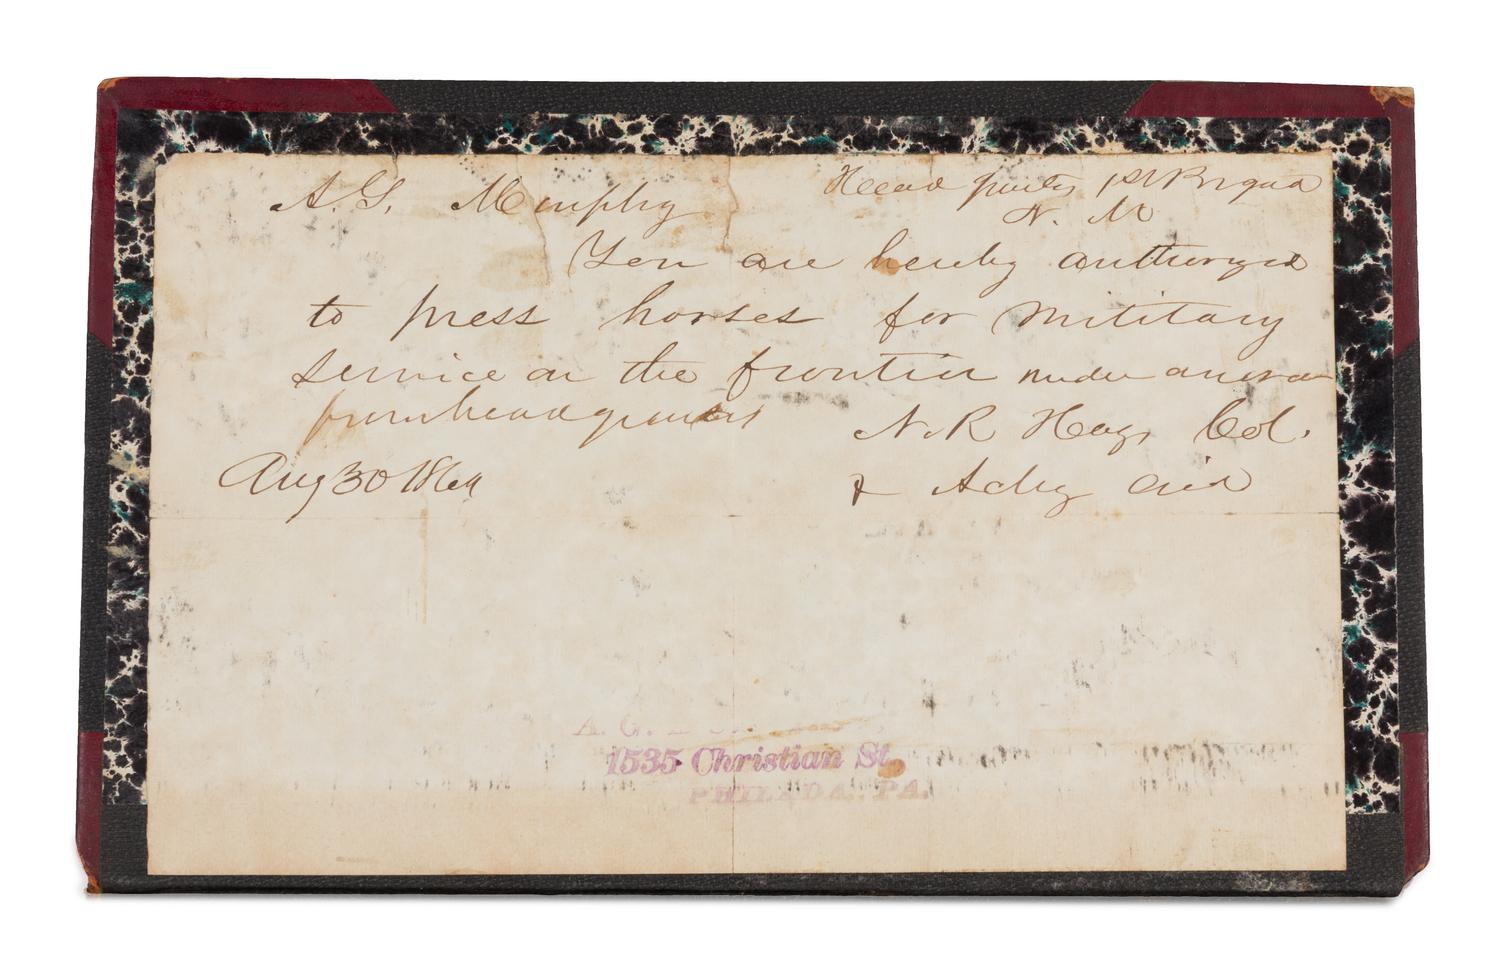 Head quarters 1st Brigad
N. M
A. G. Murphy
You are hereby authorized
to press horses for military
service on the frontier under
from headquarters
N. R Hays Col.
Aug 30 1864
& Actg aid
A. G.
1535 Christian St.
PHILADA. PA.